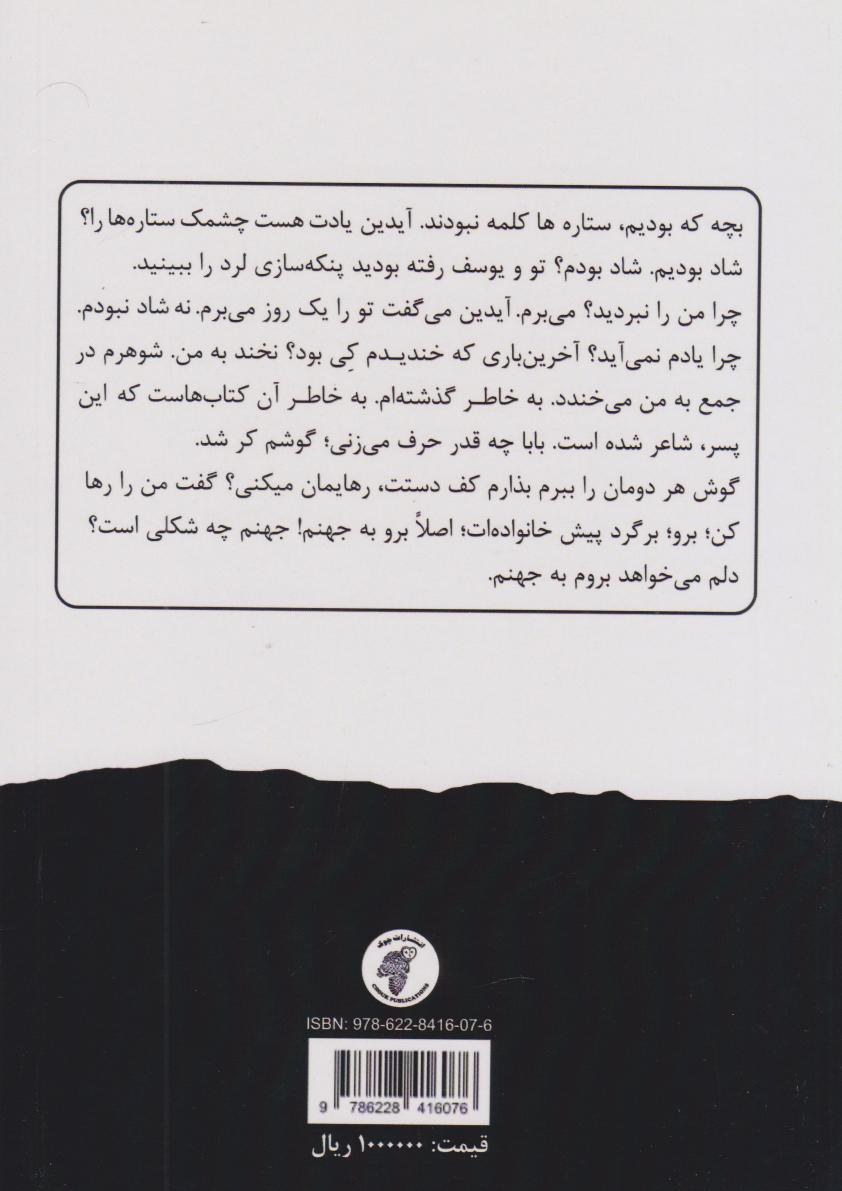 بچه که بودیم، ستاره ها کلمه نبودند. آیدین یادت هست چشمک ستاره‌ها را؟
شاد بودیم. شاد بودم؟ تو و یوسف رفته بودید پنکه‌سازی لرد را ببینید.
چرا من را نبردید؟ می‌برم. آیدین می‌گفت تو را یک روز می‌برم. نه شاد نبودم.
چرا یادم نمی‌آید؟ آخرین‌باری که خندیدم کِی بود؟ نخند به من. شوهرم در
جمع به من می‌خندد. به خاطر گذشته‌ام. به خاطر آن کتاب‌هاست که این
پسر، شاعر شده است. بابا چه قدر حرف می‌زنی؛ گوشم کر شد.
گوش هر دومان را ببرم بذارم کف دستت، رهایمان میکنی؟ گفت من را رها
کن؛ برو؛ برگرد پیش خانواده‌ات؛ اصلاً برو به جهنم! جهنم چه شکلی است؟
دلم می‌خواهد بروم به جهنم.
انتشارات چوک
CHOUK PUBLICATIONS
ISBN: 978-622-8416-07-6
9 786228 416076
قیمت: ۱۰۰۰۰۰۰ ریال